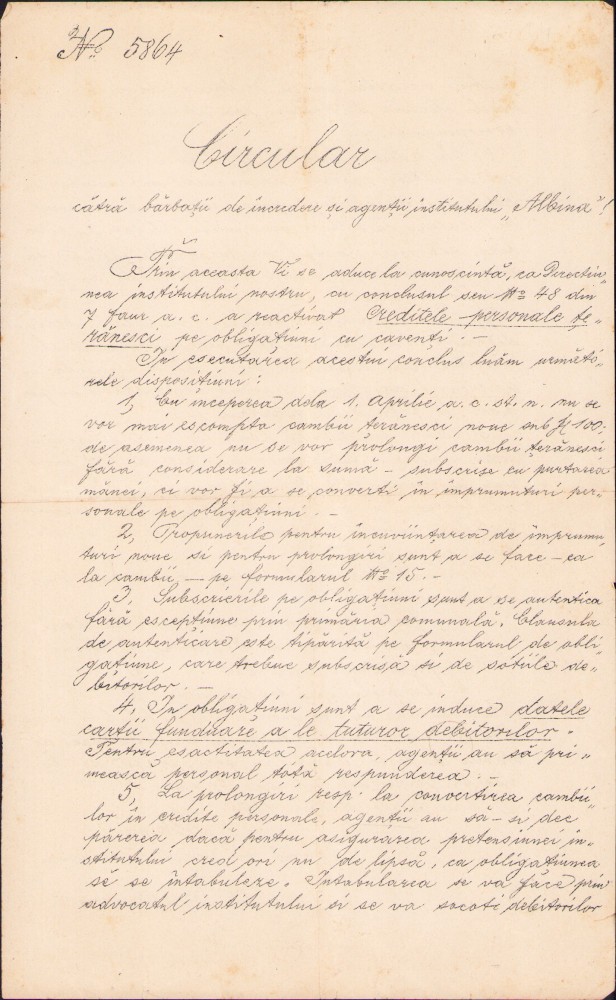 № 5864
Circular
cătră bărbații de încredere și agenții institutului „Albina"!
Prin aceasta Vi se aduce la cunoscință, ca Directiu-
nea institutului nostru, cu conclusul seu № 48 din
7 faur a. c. a reactivat Creditele-personale țe-
rănesci pe obligatiuni cu cavenți. -
In esecutarea acestui conclus luăm următo-
rele dispositiuni:
1, Cu începerea dela 1. Aprilie a. c. st. n. nu se
vor mai escompta cambii terănesci noue sub fl 100;
de asemenea nu se vor prolongi cambii terănesci
fără considerare la suma - subscrise cu purtarea
mânei, ci vor fi a se converti în împrumuturi per-
sonale pe obligatiuni. -
2, Propunerile pentru încuviințarea de împrumu-
turi noue si pentru prolongiri sunt a se face - ca
la cambii, - pe formularul № 15. -
3, Subscrierile pe obligațiuni sunt a se autentica
fără esceptiune prin primăria comunală. Clausula
de autenticare este tipărită pe formularul de obli-
gațiune, care trebue subscrisă si de sotule de-
bitorilor. -
4, In obligațiuni sunt a se induce datele
cartii funduare a le tuturor debitorilor.
Pentru esactitatea acelora, agenții au să pri-
mească personal tótă respunderea. -
5, La prolongiri resp. la convertirea cambii-
lor în credite personali, agenții au să-si dee
părerea dacă pentru asigurarea pretensiunei in-
stitutului cred ori nu de lipsă, ca obligatiunea
sĕ se întabuleze. Intabularea se va face prin
advocatul institutului si se va socoti debitorilor